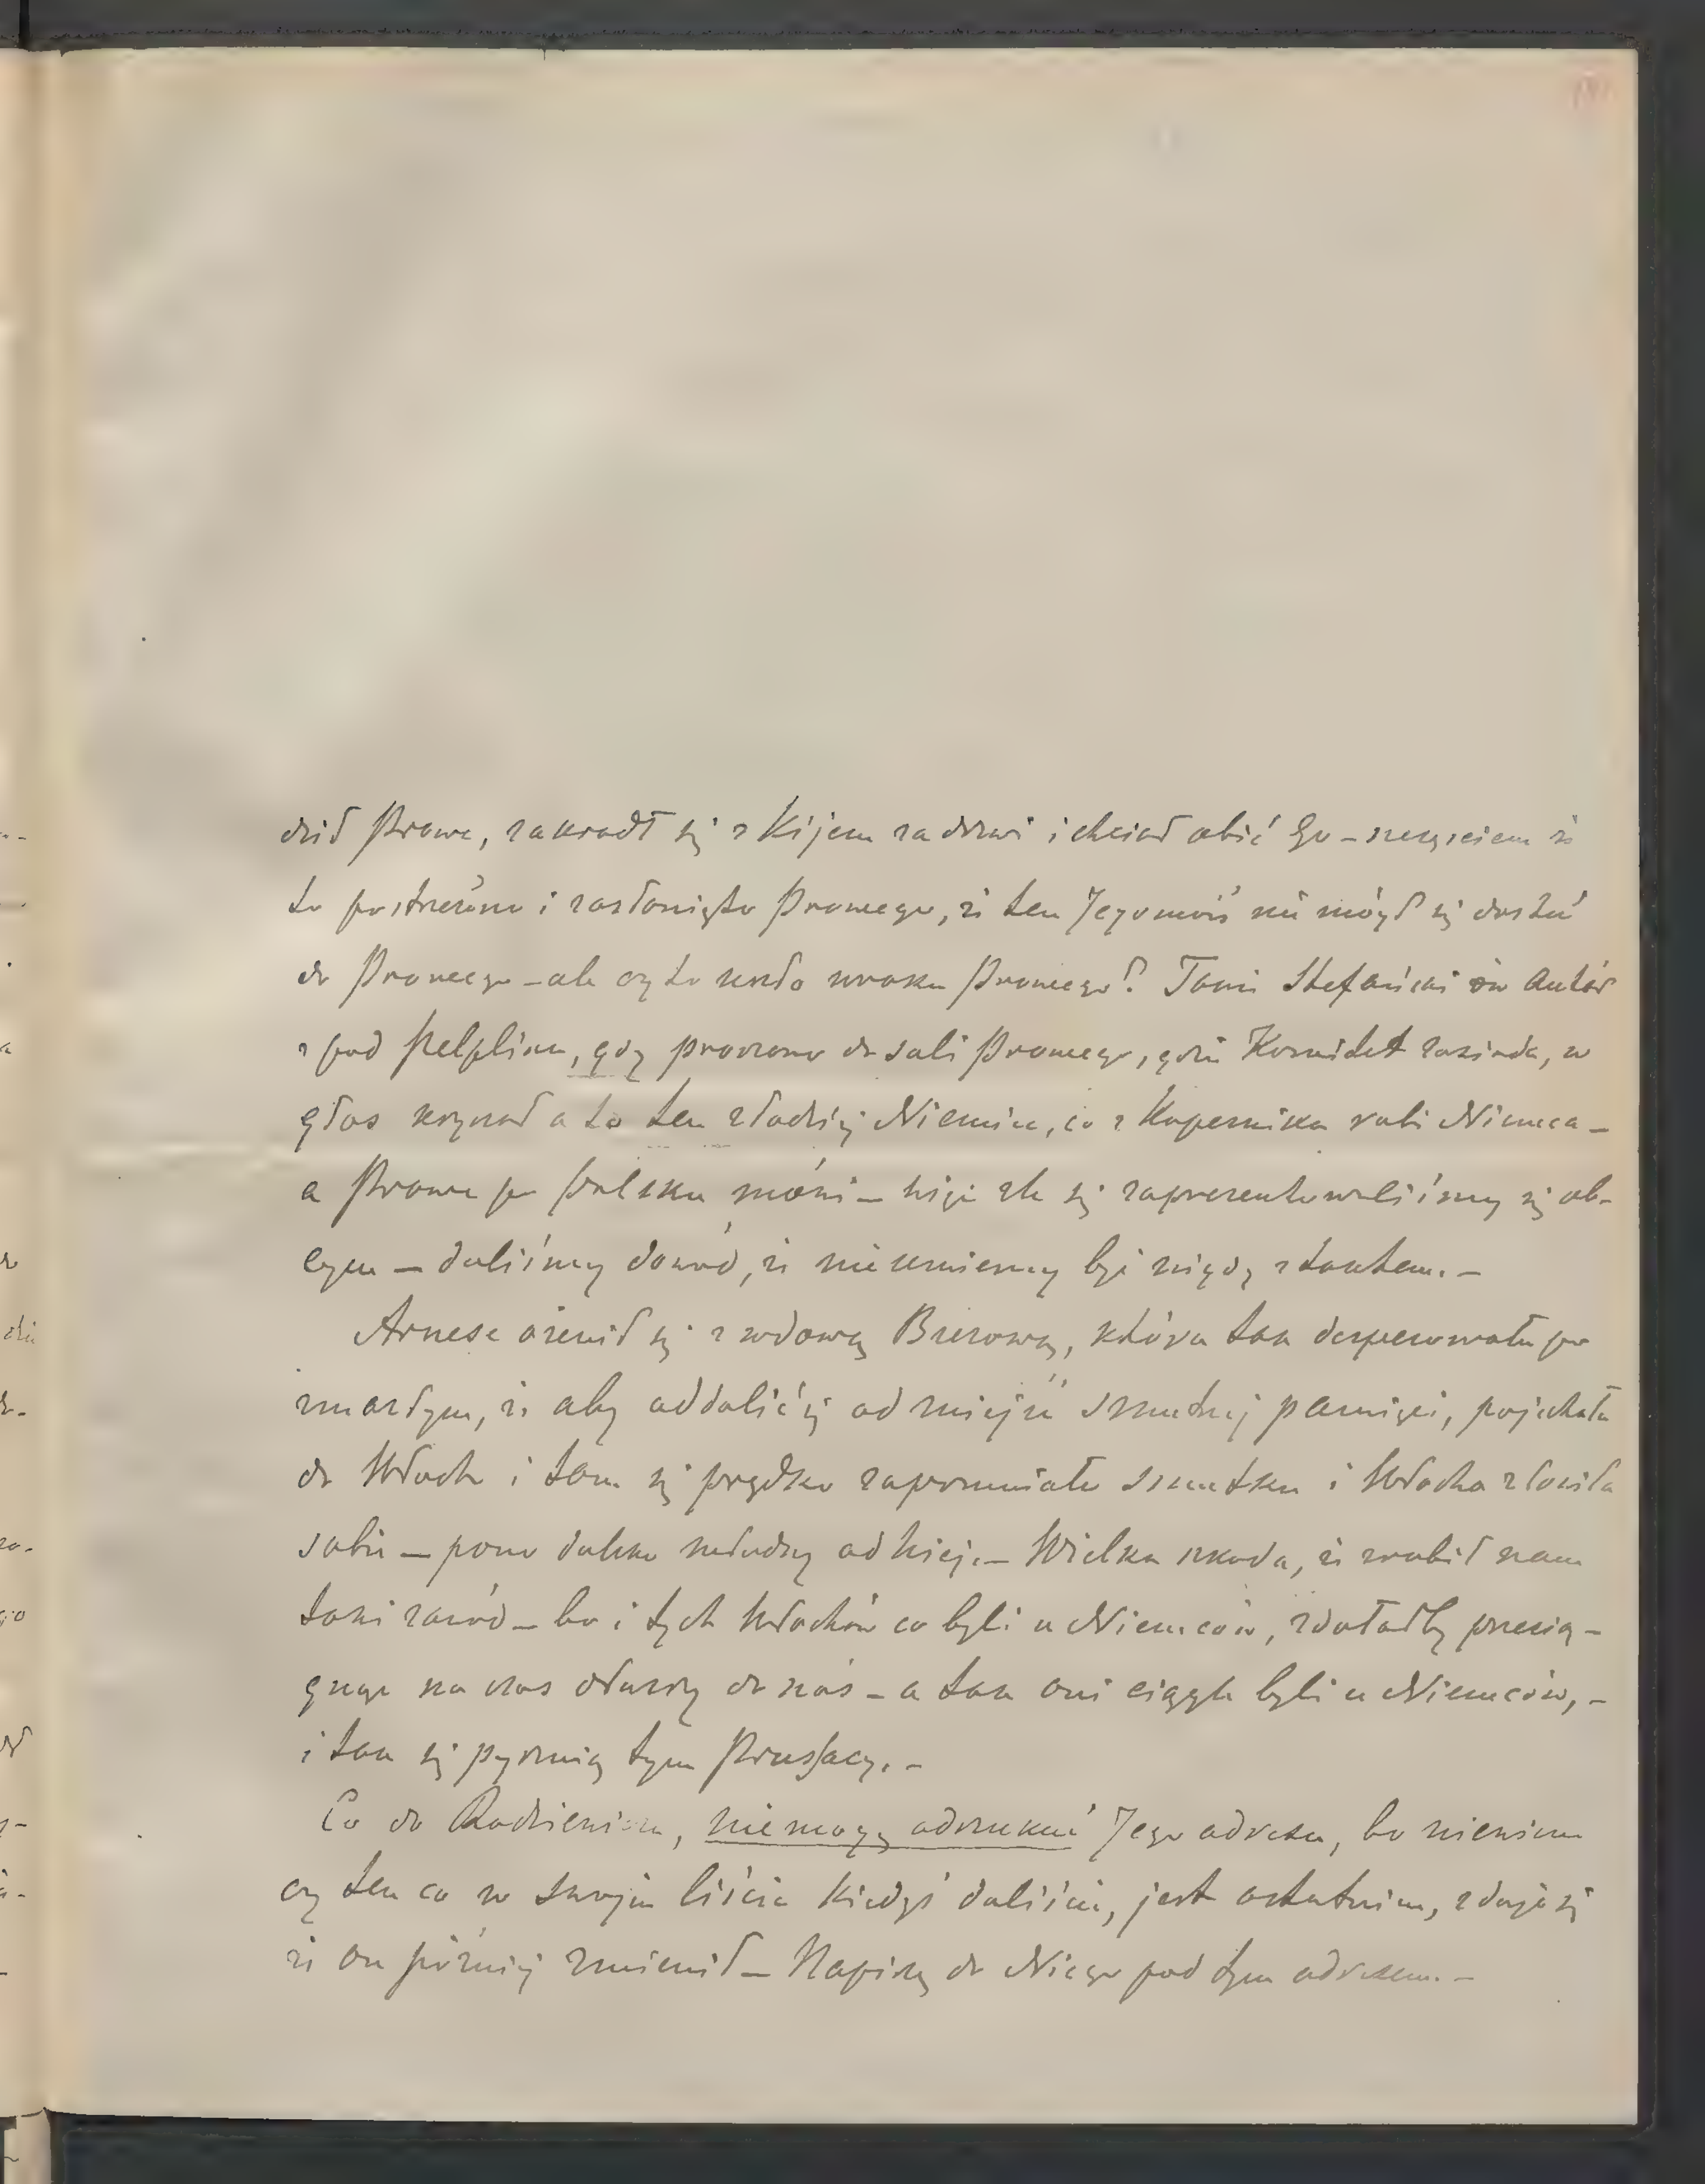 dził Prowe, zakradł się z kijem za drzwi i chciał obić Go – szczęściem że
to postrzeżono i zasłonięto Prowego, że ten Jegomość nie mógł się dostać
do Prowego – ale czy to uszło wzroku Prowego? Tenże Stefański ów autór
z pod Pelplina, gdy proszono do sali Prowego, gdzie Komitet zasiada, w
głos krzyknął a to ten złodziéj Niemiec, co z Kopernika robi Niemca –
a Prowe po polsku mówi – więc źle się zaprezentowaliśmy się ob-
cym – daliśmy dowód, że nieumiemy być nigdy z taktem. –
Arnese ożenił się z wdową Bierową, która tak desperowała po
zmarłym, że aby oddalić się od miejsc smutnéj pamięci, pojechała
do Włoch i tam się prędko zapomniała smutku i Włocha złowiła
sobie – pono daleko młodszy od niej. – Wielka szkoda, że zrobił nam
taki zawód – bo i tych Włochów co byli u Niemców, zdołałby przecią-
gnąć na czas dłuższy do nas – a tak oni ciągle byli u Niemców, –
i tak się pysznią tym Prussacy. –
Co do, niemogę odszukać Jego adresu, bo niewiem
czy ten co w swoim liście kiedyś daliście, jest ostatnim, zdaje się
że on późniéj zmienił – Napiszę do Niego pod tym adresem. –